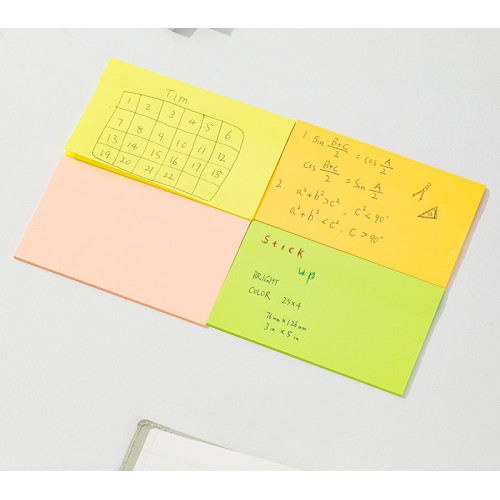 Tim
1 2 3 4 5 6
7 8 9 10 11 12
13 14 15 16 17 18
19 20 21 22
1 Sin B+C/2 = cos A/2
cos B+C/2 = Sin A/2
2. a²+b²>c², c²<90°
a²+b²<c², c>90°
Stick
up
BRIGHT
COLOR 25x4
76mm x 126mm
3in x 5in